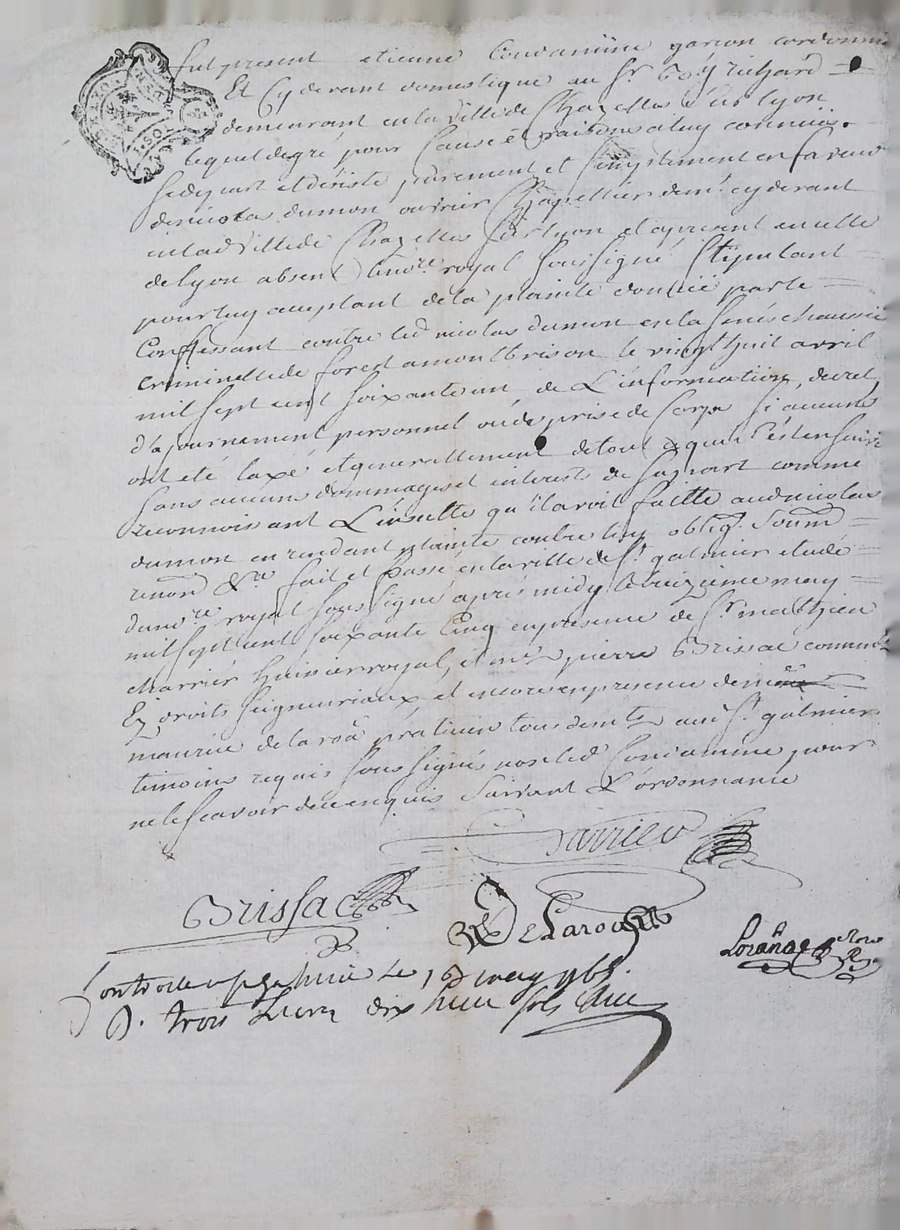 fut present etienne garcon cordonnier
Et cyderant domestique au Sr richard
demeurant en la ville de Chazelles Lyon
lequel de gré pour Cause & raisons a luy connues
se depart et desiste purement et simplement en faveur
de nicolas dumon ouvrier Chapellier dem.t cyderant
en lad ville de Chazelles sur Lyon et apresent en celle
de Lyon absent no.re royal soussigné Stipulant
pour luy acceptant de la plainte donnée par le
Confessant contre led nicolas dumon en la Sénéchaussée
criminelle de forest a montbrison le vingt huit avril
mil sept cent soixante un, de L'information, decret
d'ajournement personnel ou de prise de Corps Si aucuns
ont été laxé et generallement de tout ce qui s'est ensuivi
sans aucuns dommages et interests de sa part comme
reconnoissant L'insulte qu'il avoit faitte aud nicolas
dumon en rendant plainte contre luy oblig. Soum
renon &.re fait et passé en la ville de S.t galmier etude
dud no.re royal soussigné après midy le seizieme may
mil sept cent soixante Cinq en presence de S.r mathieu
charrier huissier royal, et m.e pierre Brissac commis.re
Ez droits Seigneuriaux et encore en presence de
maurice de la roa praticien tous dem.ts aud S.t galmier
temoins requis soussignés non led pour
ne le scavoir de ce enquis Suivant L'ordonnance
Charrier
Brissac
DeLaroa
no.re
Controlé a St galmier le 16 may 1765.
R. trois Livres dix huit sols